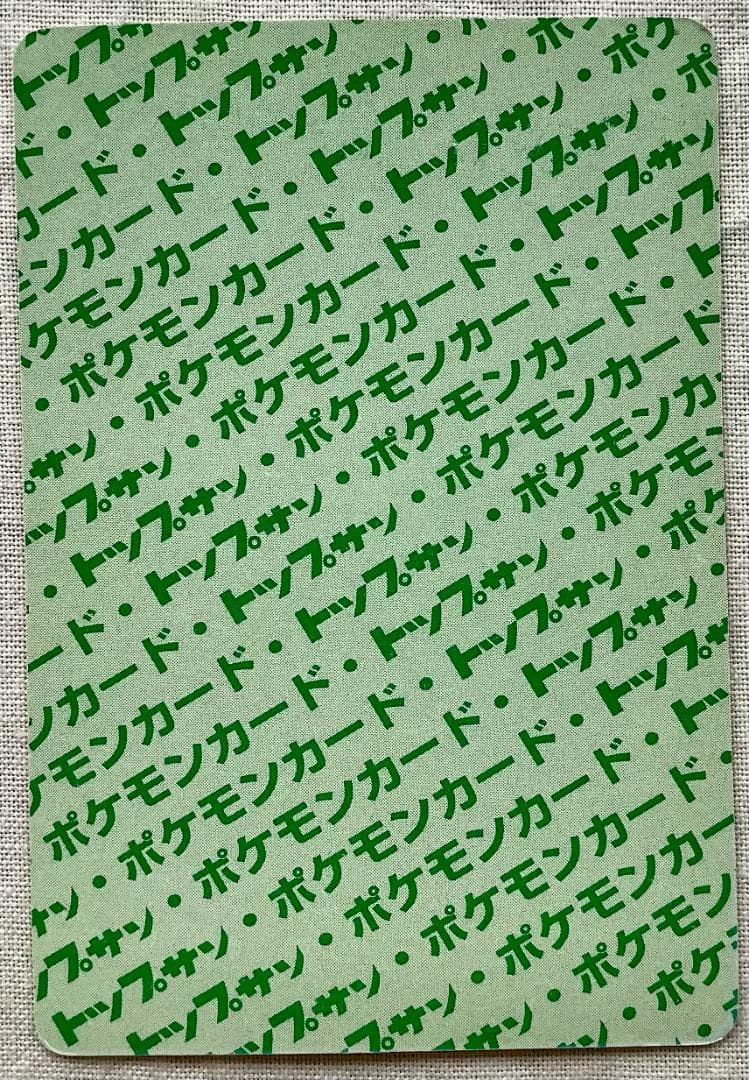 トップサン
ド・トップサン
ード・トップサン
ンカード・トップサン・
ケモンカード・トップサン・ポケ
・ポケモンカード・トップサン・ポケ
サン・ポケモンカード・トップサン・ポ
ップサン・ポケモンカード・トップサン
・トップサン・ポケモンカード・トップ
ード・トップサン・ポケモンカード・ト
ンカード・トップサン・ポケモンカード
ケモンカード・トップサン・ポケモンカ
ポケモンカード・トップサン・ポケモ
サン・ポケモンカード・トップサン・ポケ
プサン・ポケモンカード・トップサン・
トップサン・ポケモンカード・トップサ
トップサン・ポケモンカード・トッ
トップサン・ポケモンカード・
プサン・ポケモンカー
サン・ポケモン
・ポケ